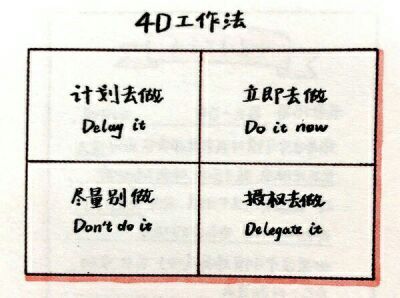 4D工作法
计划去做
Delay it
立即去做
Do it now
尽量别做
Don't do it
授权去做
Delegate it